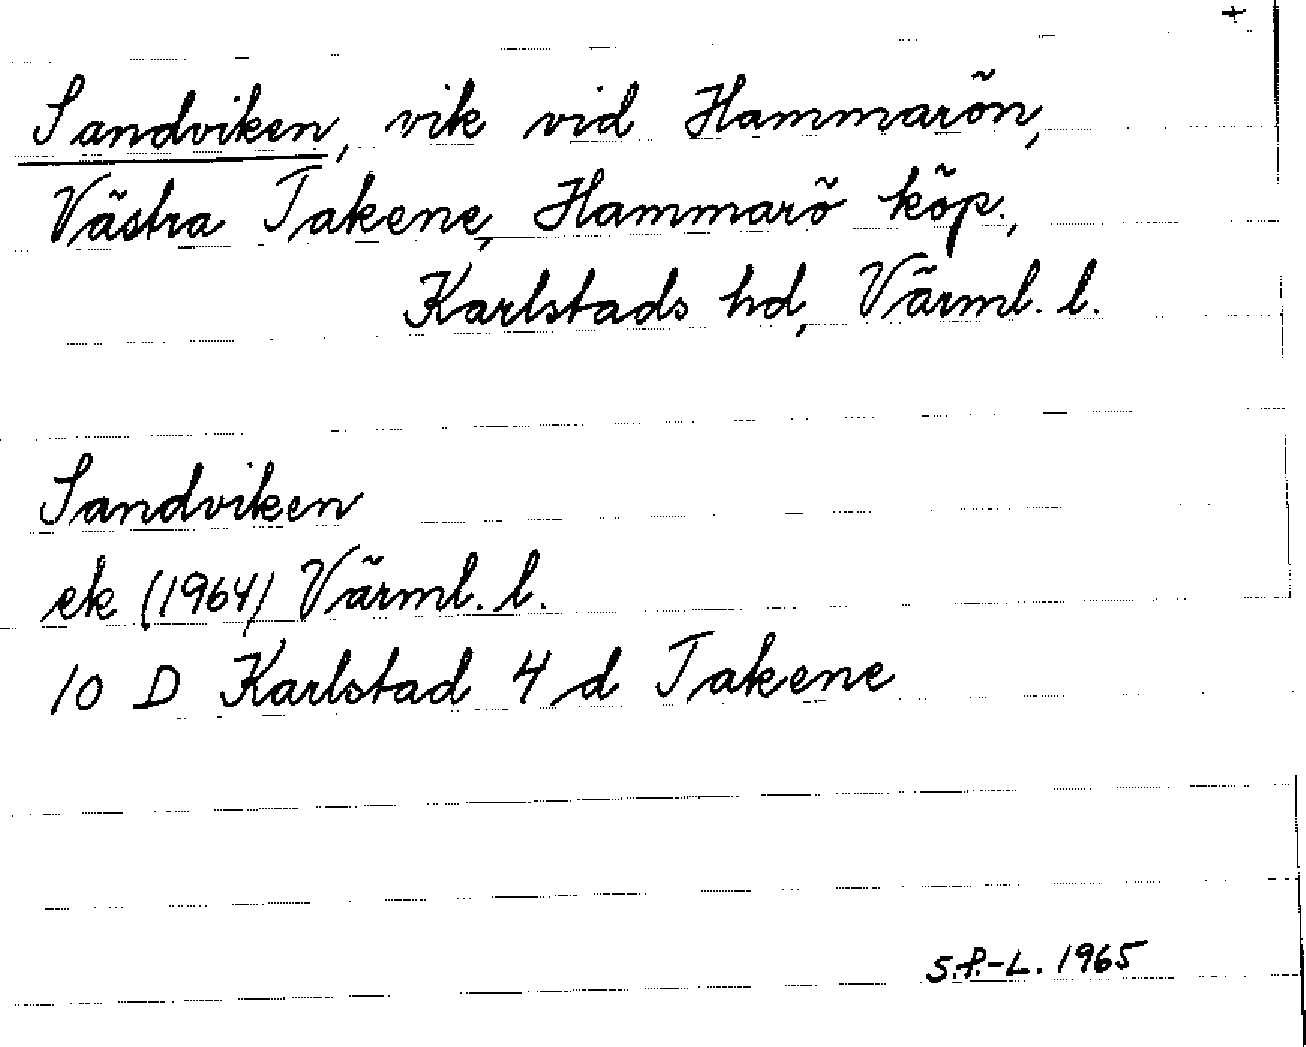 +
Sandviken, vik vid Hammarön,
Västra Takene, Hammarö köp.,
Karlstads hd, Värml. l.
Sandviken
ek (1964) Värml. l.
10 D Karlstad 4 d Takene
S.P.-L. 1965